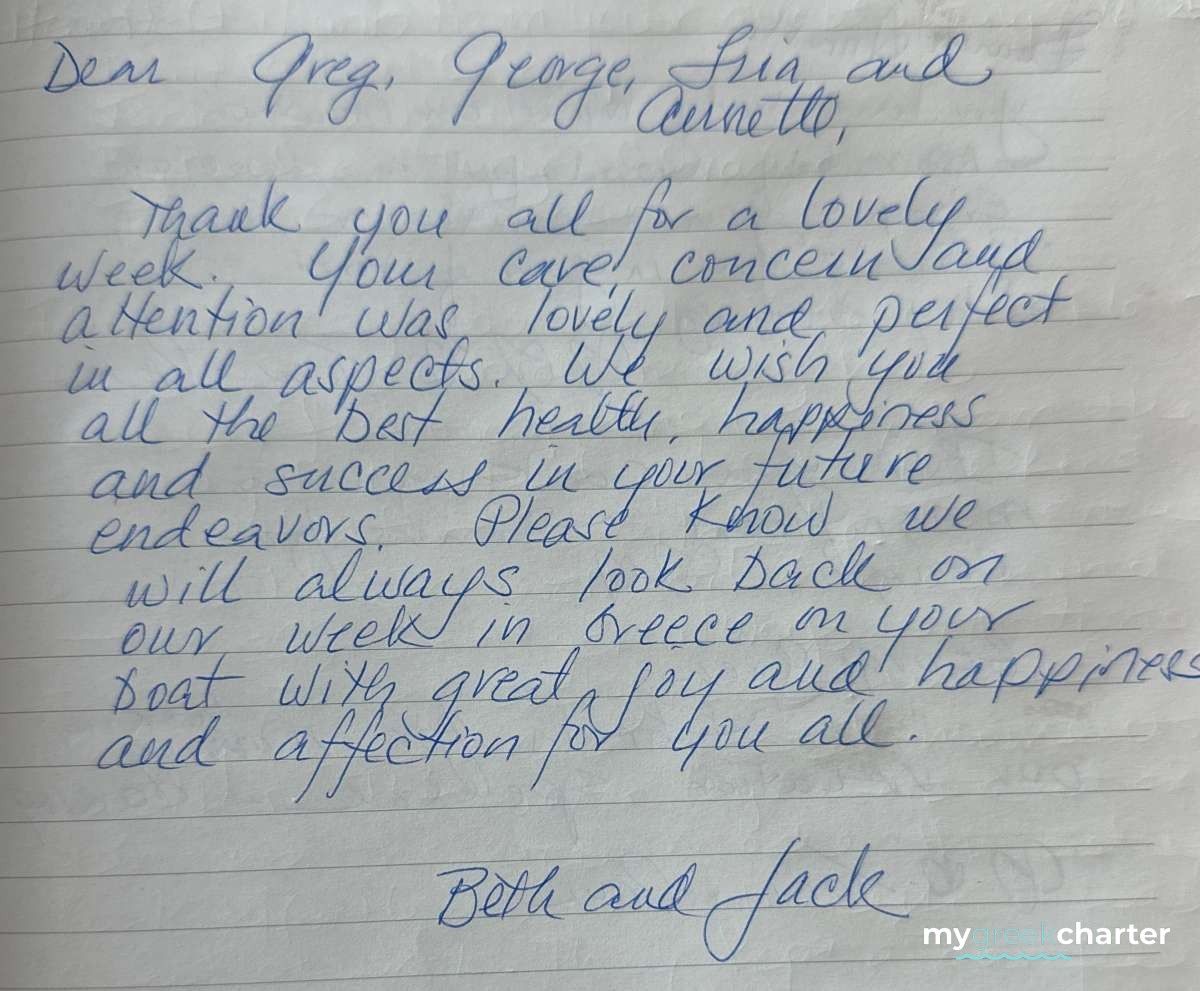 Dear Greg, George, Lria and
Annette,
Thank you all for a lovely
week. Your care, concern and
attention was lovely and perfect
in all aspects. We wish you
all the best health, happiness
and success in your future
endeavors. Please know we
will always look back on
our week in Greece on your
boat with great joy and happiness
and affection for you all.
Beth and Jack
mygreekcharter